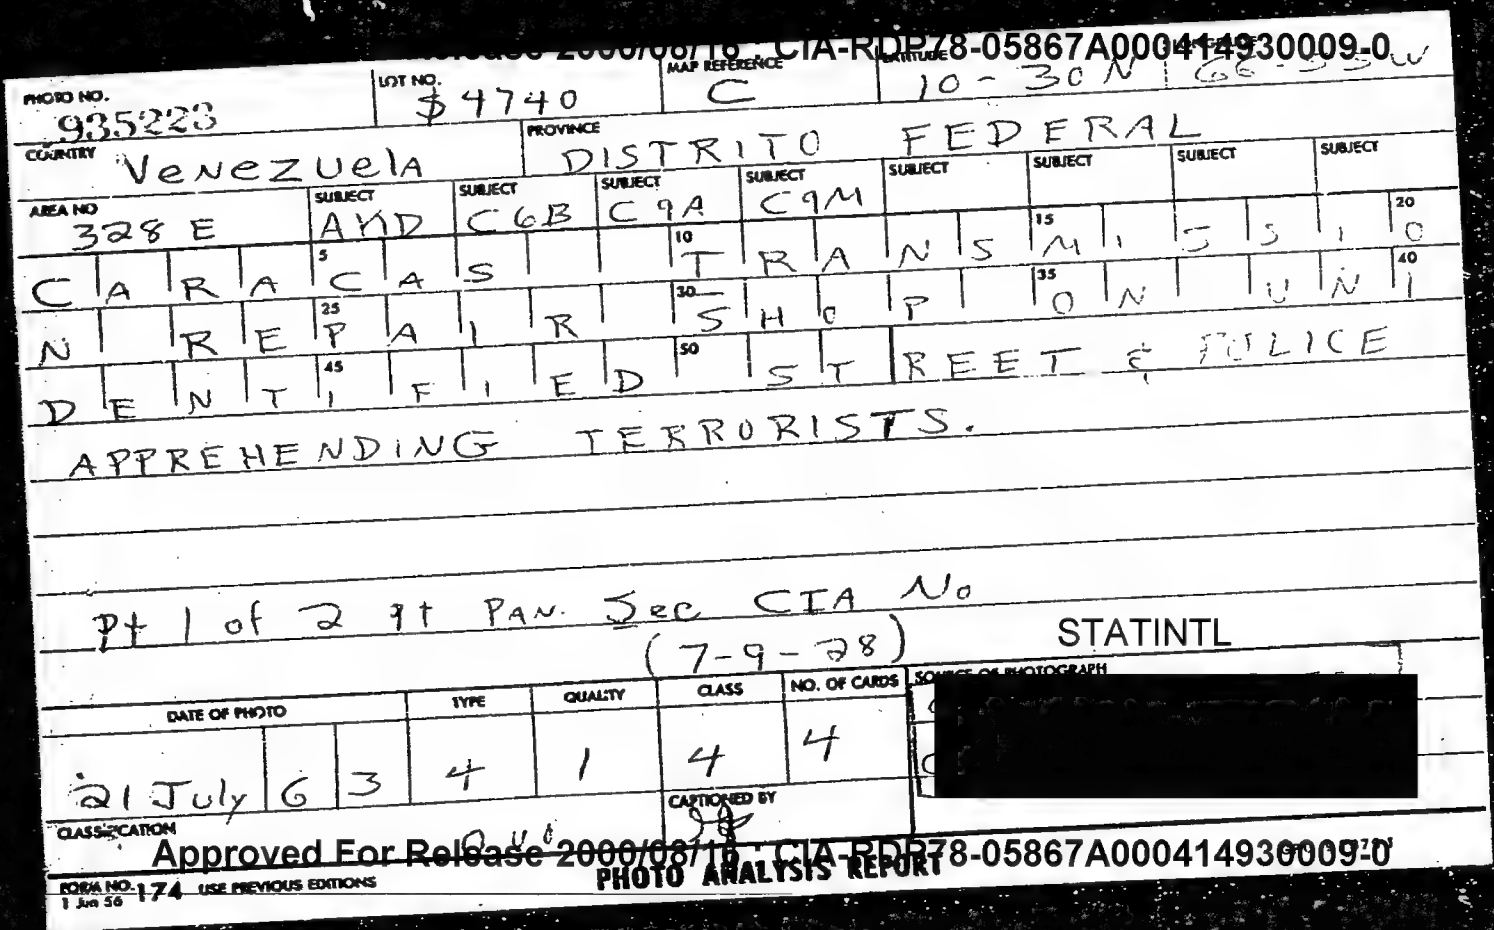 Release 2000/08/16 : CIA-RDP78-05867A000414930009-0
PHOTO NO. 935223
LOT NO. $4740
MAP REFERENCE C
LATITUDE 10-30N
COUNTRY Venezuela
PROVINCE DISTRITO FEDERAL
AREA NO 328 E
SUBJECT SUBJECT C6B SUBJECT C9A SUBJECT C9M SUBJECT SUBJECT SUBJECT SUBJECT
5 10 15 20
CARACAS TRANSMISSIO
25 30 35 40
N REPAIR SHOP ON UNI
45 50
DENTIFIED STREET & POLICE
APPREHENDING TERRORISTS.
Pt 1 of 2 pt PAN. Sec CIA No
(7-9-28)
STATINTL
DATE OF PHOTO 21 July 63
TYPE 4
QUALITY 1
CLASS 4
NO. OF CARDS 4
SOURCE OF PHOTOGRAPH
CLASSIFICATION
CAPTIONED BY
Approved For Release 2000/08/16 : CIA-RDP78-05867A000414930009-0
FORM NO. 174 USE PREVIOUS EDITIONS
1 Jun 56
PHOTO ANALYSIS REPORT